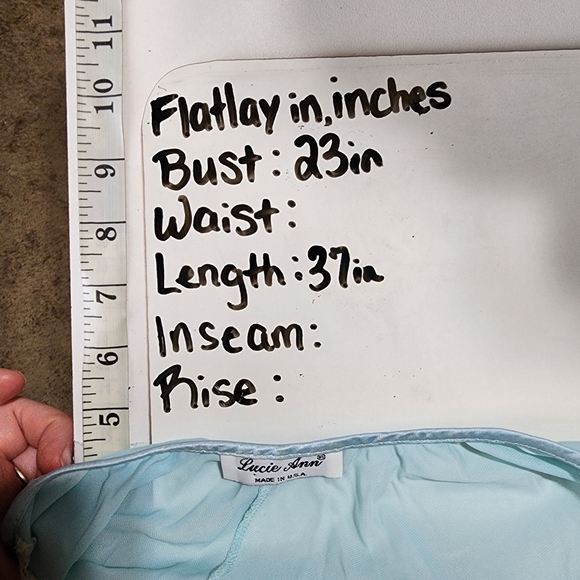 11
10
9
8
7
6
5
Flatlay in, inches
Bust: 23in
Waist:
Length: 37in
Inseam:
Rise:
Lucie Ann®
MADE IN U.S.A.